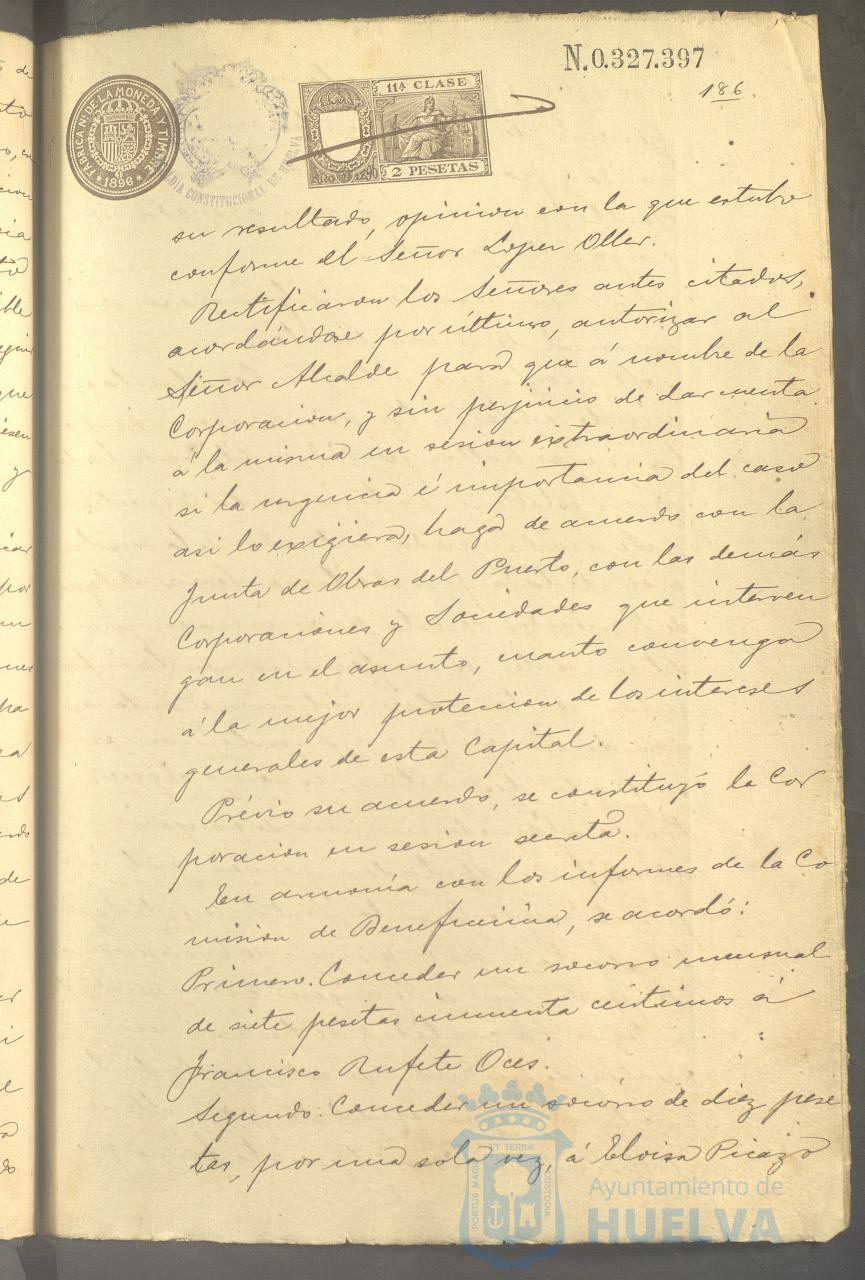 N.0.327.397
186
FÁBRICA Nl. DE LA MONEDA Y TIMBRE
1896
CONSTITUCIONAL DE HUELVA
11ª CLASE
2 PESETAS
su resultado, opinion con la que estubo
conforme el Señor Lopez Oller.
Rectificaron los Señores antes citados,
acordándose por último, autorizar al
Señor Alcalde para que á nombre de la
Corporacion, y sin perjuicio de dar cuenta
á la misma en sesion extraordinaria
si la urgencia é importancia del caso
asi lo exigiera, haga de acuerdo con la
Junta de Obras del Puerto, con las demás
Corporaciones y Sociedades que interven
gan en el asunto, cuanto convenga
á la mejor proteccion de los intereses
generales de esta Capital.
Prévio su acuerdo, se constituyó la Cor
poracion en sesion secreta.
En armonía con los informes de la Co
mision de Beneficencia, se acordó:
Primero. Conceder un socorro mensual
de siete pesetas cincuenta centimos á
Francisco Rufete Oces.
Segundo. Conceder un socorro de diez pese
tas, por una sola vez, á Eloisa Picazo
PORTUS MARIS ET TERRAE CUSTODIA
Ayuntamiento de
HUELVA